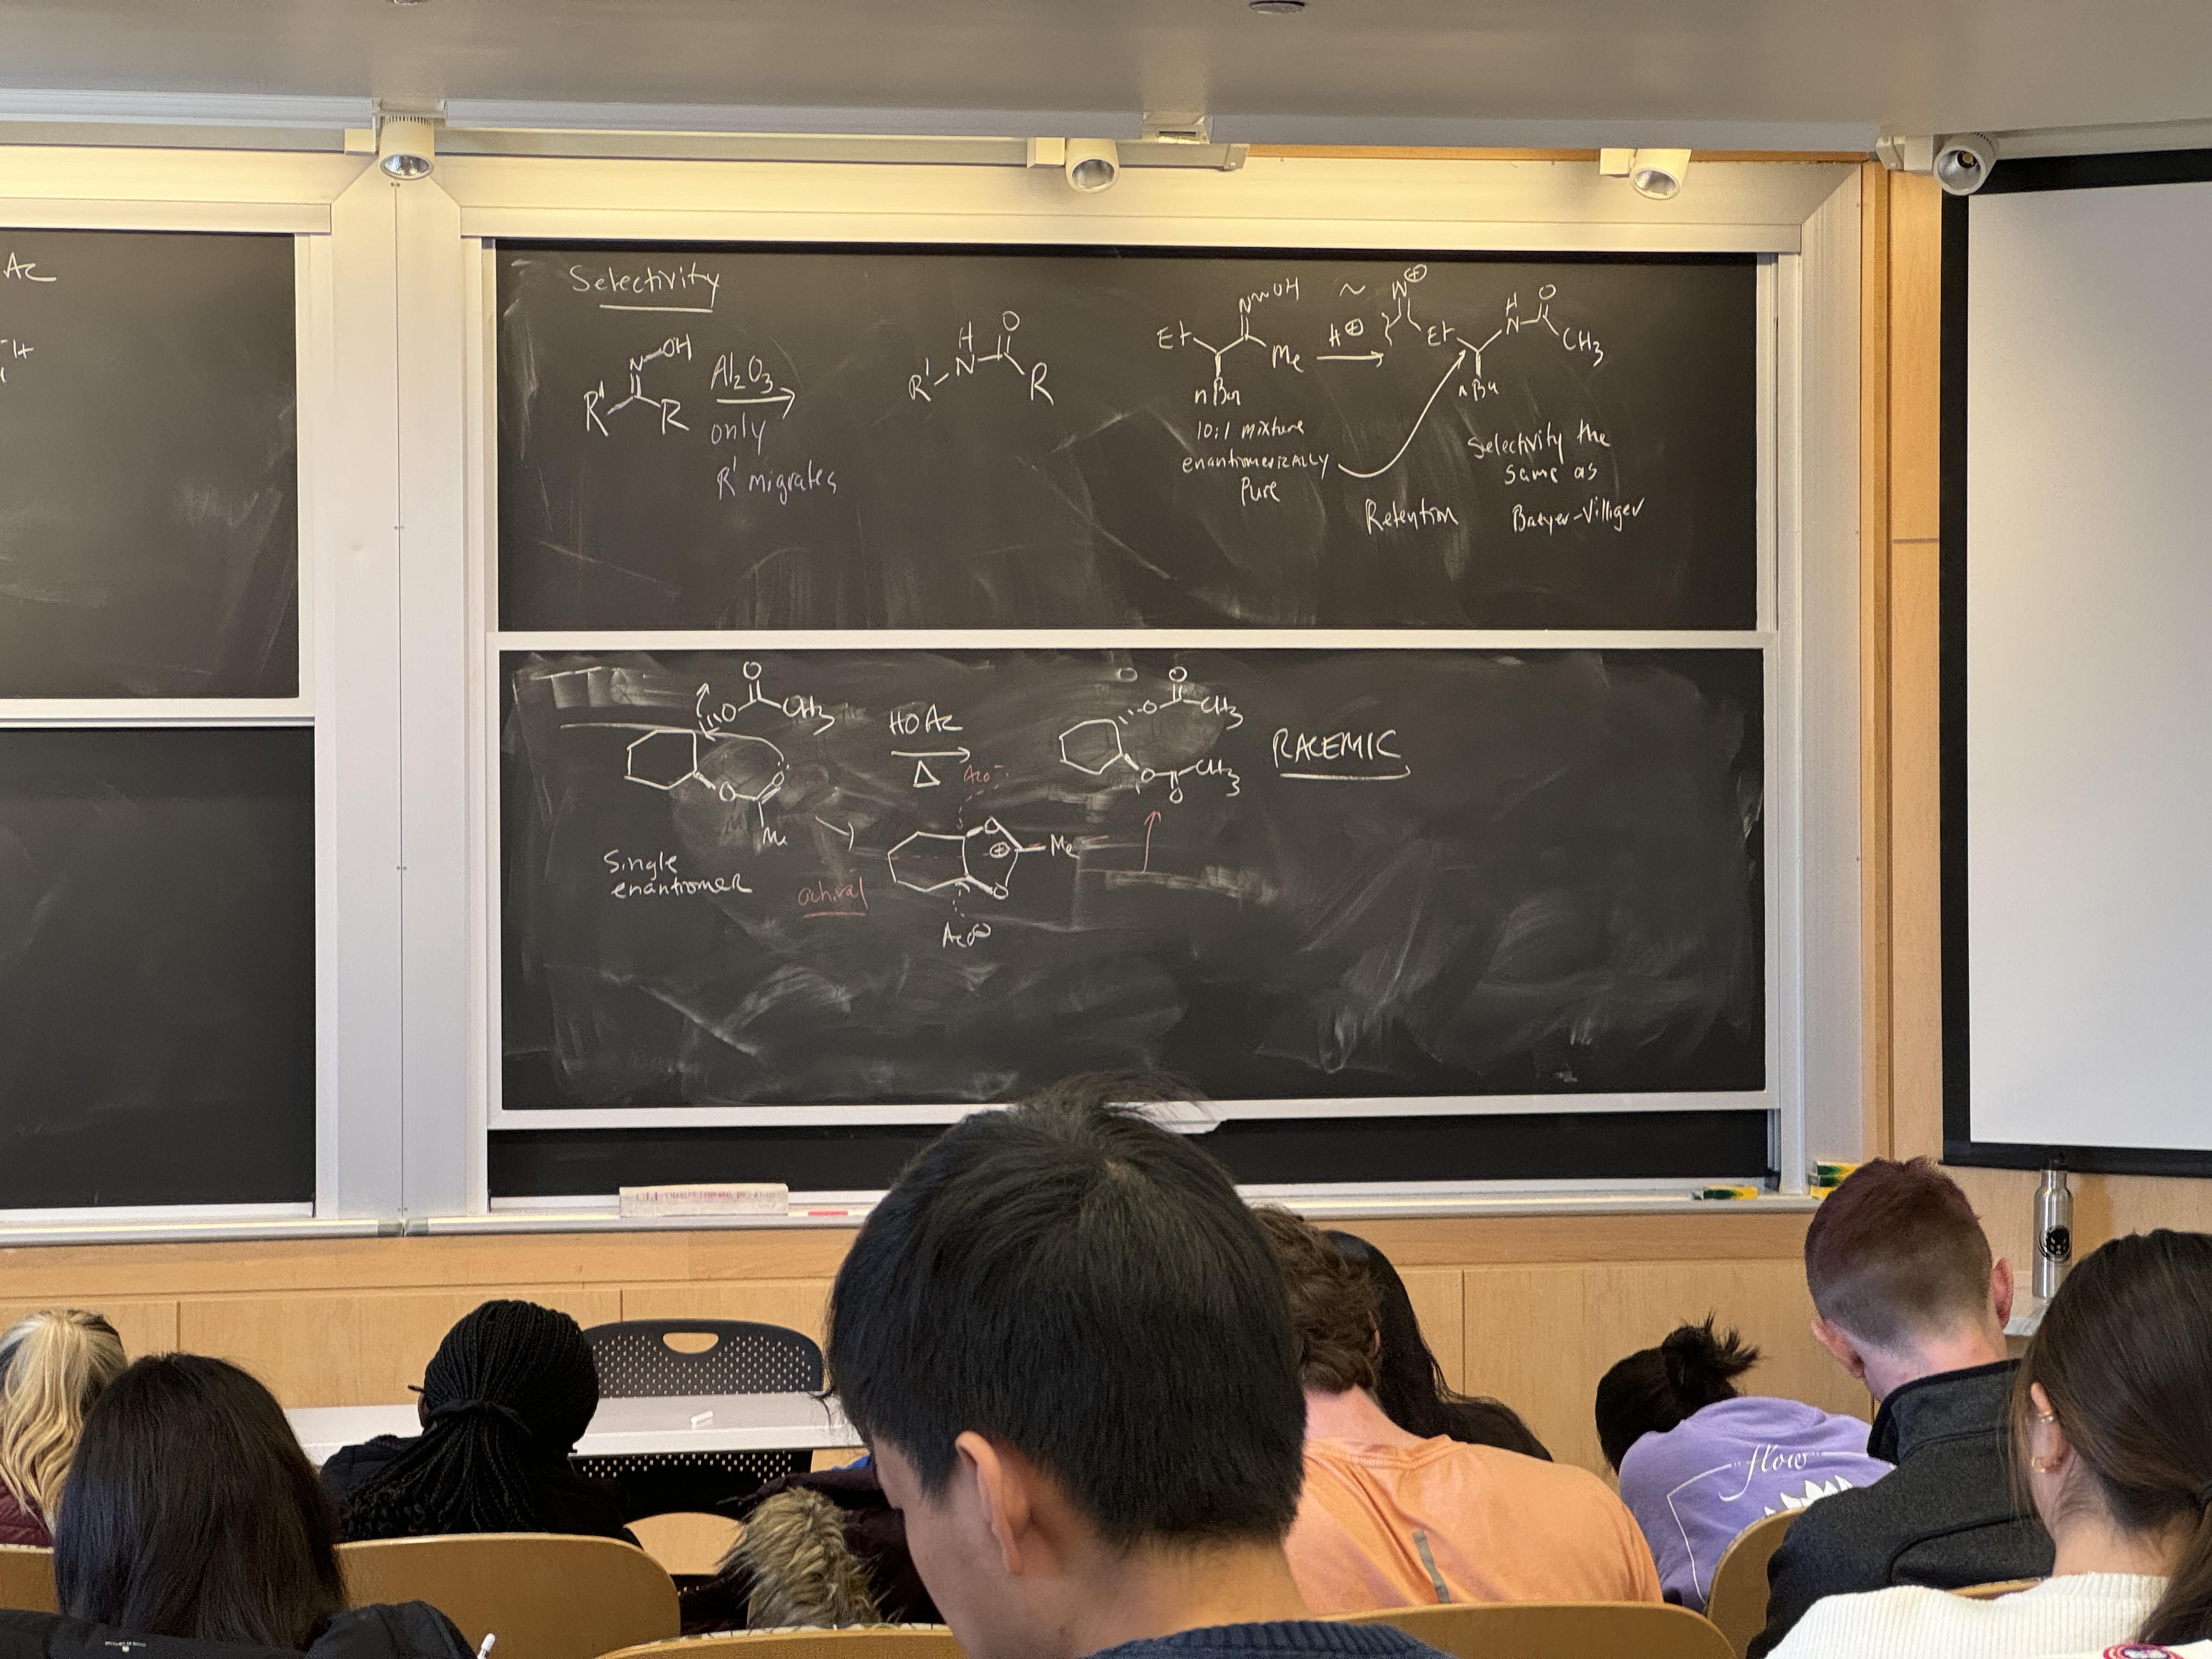 Ac
Selectivity
N OH
R' R
Al2O3
only
R' migrates
H
N
O
R' R
N OH
Et
Me
nBu
10:1 mixture
enantiomerically
Pure
~
H⊕
N⊕
Et
H
N
O
CH3
nBu
Retention
Selectivity the
same as
Baeyer-Villiger
O
O CH3
O
O
Me
Single
enantiomer
HOAc
Δ
AcO-
O
⊕
Me
O
AcO⊖
achiral
O
O
O CH3
O CH3
O
RACEMIC
flow